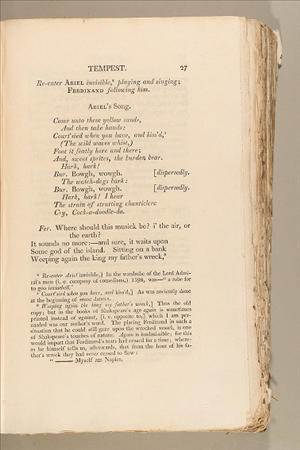 TEMPEST. 27
Re-enter ARIEL invisible,⁸ playing and singing;
FERDINAND following him.
ARIEL's Song.
Come unto these yellow sands,
And then take hands:
Court'sied when you have, and kiss'd,⁹
(The wild waves whist,)
Foot it featly here and there;
And, sweet sprites, the burden bear.
Hark, hark!
Bur. Bowgh, wowgh. [dispersedly.
The watch-dogs bark:
Bur. Bowgh, wowgh. [dispersedly.
Hark, hark! I hear
The strain of strutting chanticlere
Cry, Cock-a-doodle-do.
Fer. Where should this musick be? i' the air, or
the earth?
It sounds no more:—and sure, it waits upon
Some god of the island. Sitting on a bank
Weeping again the king my father's wreck,
Re-enter Ariel invisible,] In the wardrobe of the Lord Admi-
ral's men (i. e. company of comedians,) 1598, was—" a robe for
to goo invisebell."
Court'sied when you have, and kiss'd,] As was anciently done
at the beginning of some dances.
Weeping again the king my father's wreck,] Thus the old
copy; but in the books of Shakspeare's age again is sometimes
printed instead of against, [i. e. opposite to,] which I am per-
suaded was our author's word. The placing Ferdinand in such a
situation that he could still gaze upon the wrecked vessel, is one
of Shakspeare's touches of nature. Again is inadmissible; for this
would import that Ferdinand's tears had ceased for a time; whereas
he himself tells us, afterwards, that from the hour of his fa-
ther's wreck they had never ceased to flow:
" —— Myself am Naples,